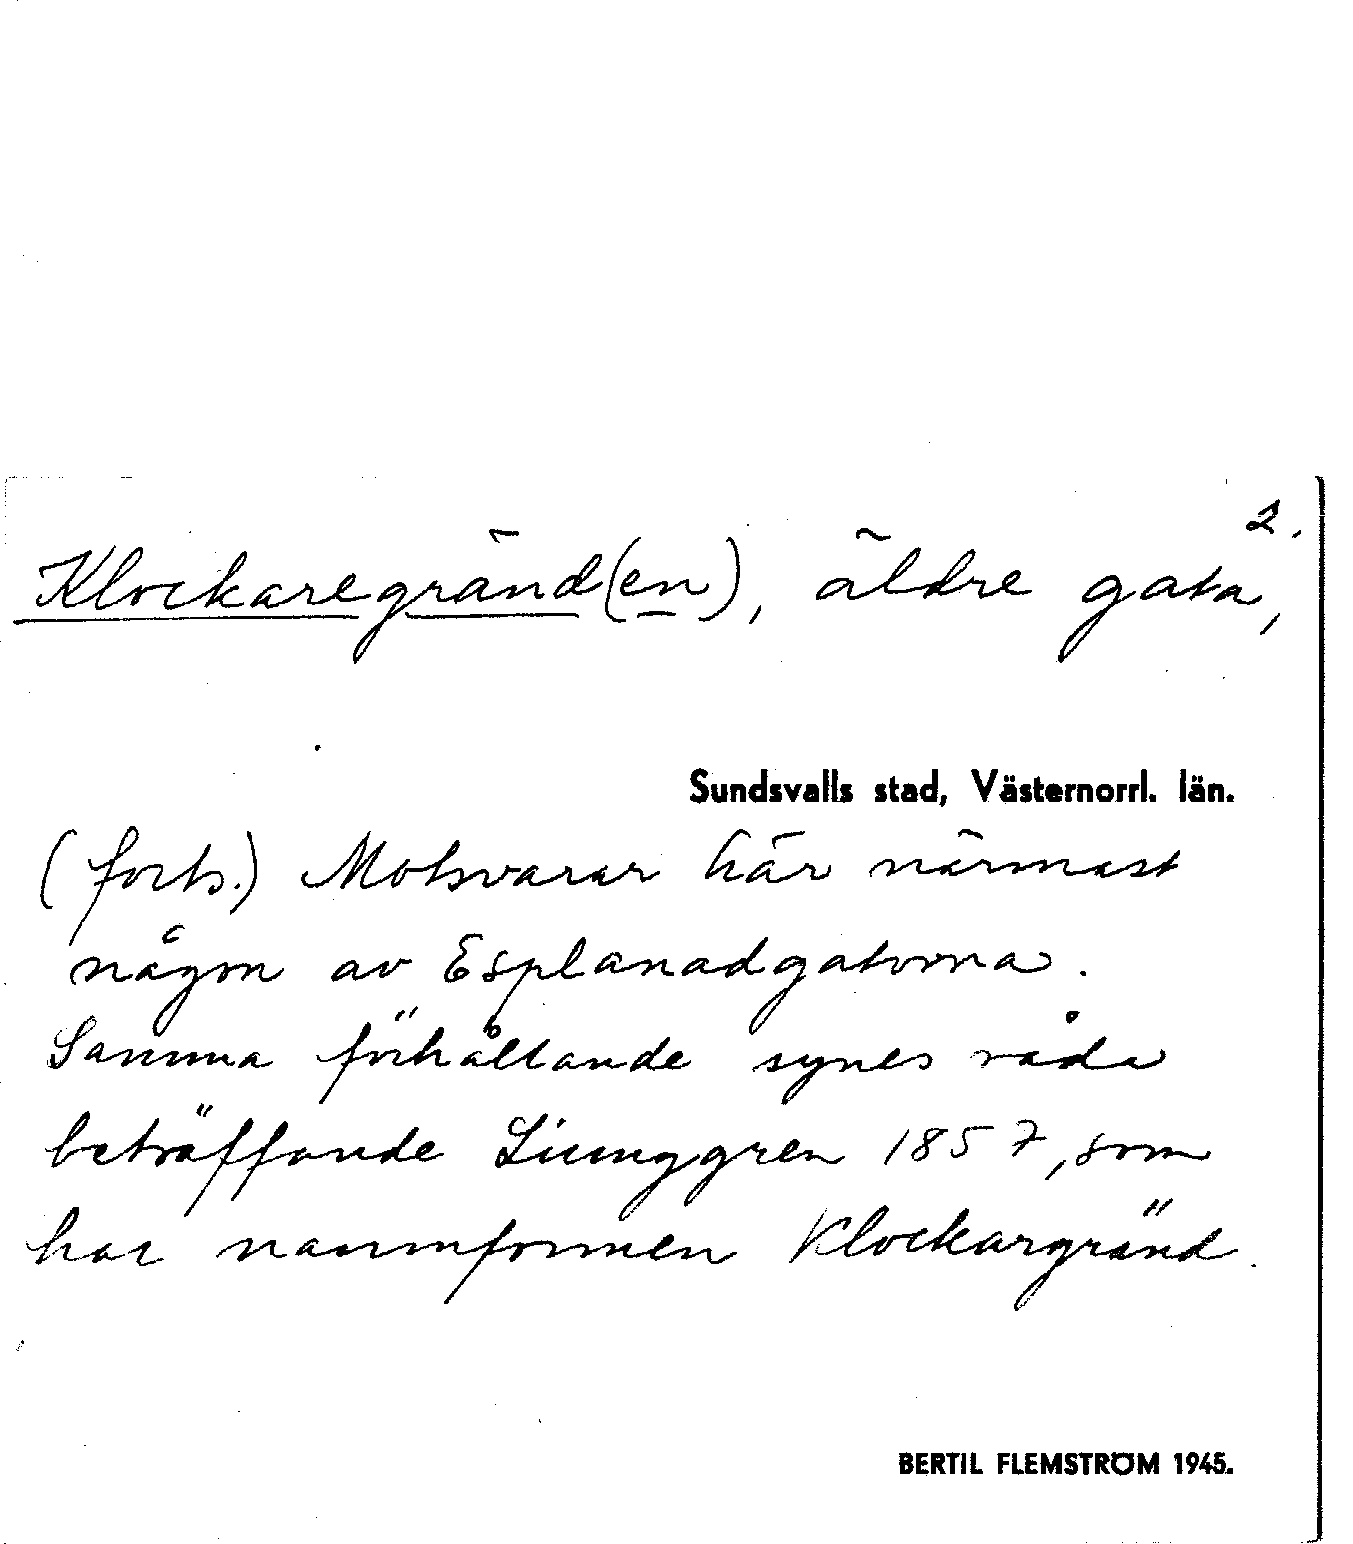 2.
Klockaregränd(en), äldre gata,
Sundsvalls stad, Västernorrl. län.
(forts.) Motsvarar här närmast
någon av Esplanadgatorna.
Samma förhållande synes råda
beträffande Liunggren 1857, som
har namnformen Klockargränd.
BERTIL FLEMSTRÖM 1945.